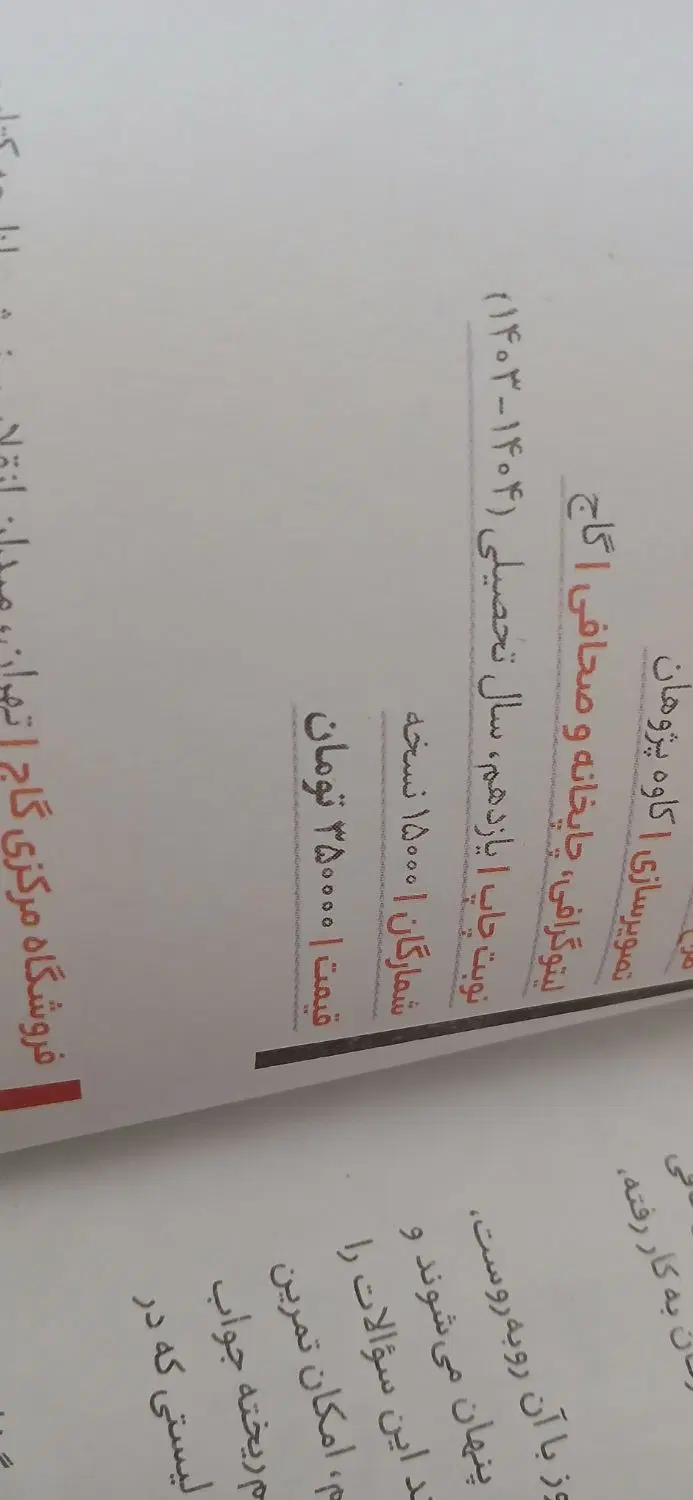 تصویرسازی | کاوه پژوهان
لیتوگرافی، چاپخانه و صحافی | گاج
نوبت چاپ | یازدهم، سال تحصیلی (۱۴۰۴-۱۴۰۳)
شمارگان | ۱۵۰۰۰ نسخه
قیمت | ۳۵۰۰۰۰ تومان
فروشگاه مرکزی گاج | تهران، میدان انقلاب
به کار رفته،
با آن روبه‌روست،
پنهان می‌شوند و
این سؤالات را
امکان تمرین
ریخته جواب
لیستی که در